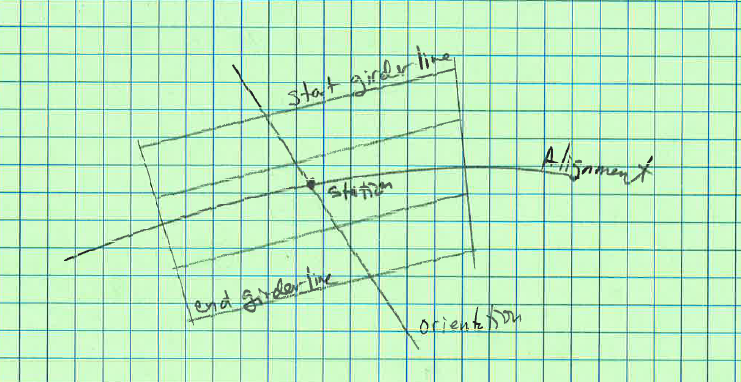 start girder line
Alignment
station
end girder line
orientation